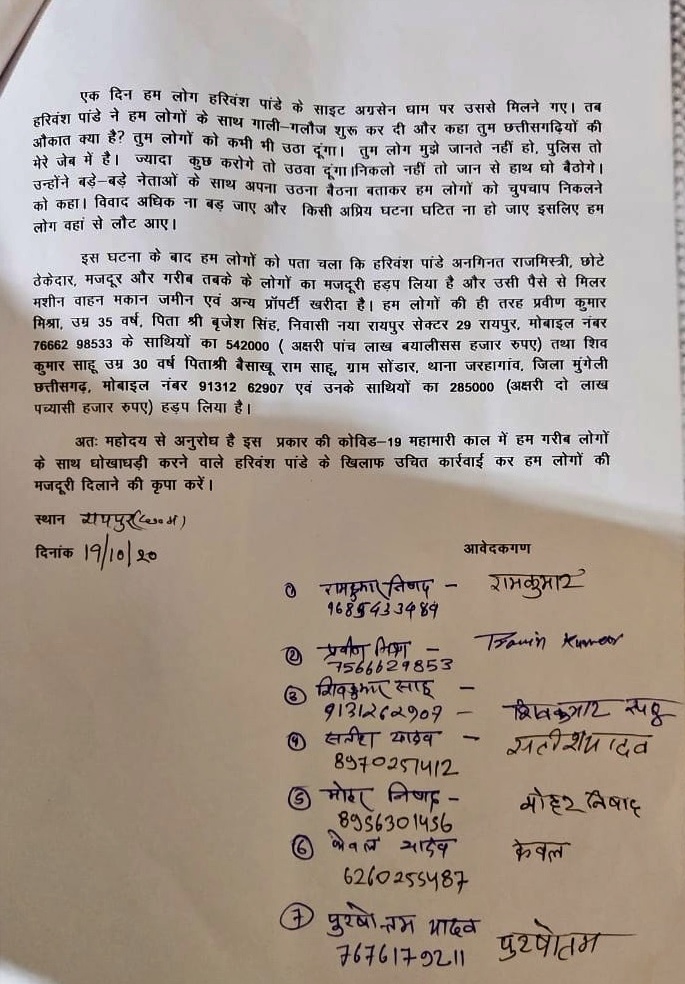 एक दिन हम लोग हरिवंश पांडे के साइट अग्रसेन धाम पर उससे मिलने गए। तब
हरिवंश पांडे ने हम लोगों के साथ गाली-गलौज शुरू कर दी और कहा तुम छत्तीसगढ़ियों की
औकात क्या है? तुम लोगों को कभी भी उठा दूंगा। तुम लोग मुझे जानते नहीं हो, पुलिस तो
मेरे जेब में है। ज्यादा कुछ करोगे तो उठवा दूंगा।निकलो नहीं तो जान से हाथ धो बैठोगे।
उन्होंने बड़े-बड़े नेताओं के साथ अपना उठना बैठना बताकर हम लोगों को चुपचाप निकलने
को कहा। विवाद अधिक ना बड़ जाए और किसी अप्रिय घटना घटित ना हो जाए इसलिए हम
लोग वहां से लौट आए।
इस घटना के बाद हम लोगों को पता चला कि हरिवंश पांडे अनगिनत राजमिस्त्री, छोटे
ठेकेदार, मजदूर और गरीब तबके के लोगों का मजदूरी हड़प लिया है और उसी पैसे से मिलर
मशीन वाहन मकान जमीन एवं अन्य प्रॉपर्टी खरीदा है। हम लोगों की ही तरह प्रवीण कुमार
मिश्रा, उम्र 35 वर्ष, पिता श्री बृजेश सिंह, निवासी नया रायपुर सेक्टर 29 रायपुर, मोबाइल नंबर
76662 98533 के साथियों का 542000 ( अक्षरी पांच लाख बयालीसस हजार रुपए) तथा शिव
कुमार साहू उम्र 30 वर्ष पिताश्री बैसाखू राम साहू, ग्राम सोंडार, थाना जरहागांव, जिला मुंगेली
छत्तीसगढ़, मोबाइल नंबर 91312 62907 एवं उनके साथियों का 285000 (अक्षरी दो लाख
पच्यासी हजार रुपए) हड़प लिया है।
अतः महोदय से अनुरोध है इस प्रकार की कोविड-19 महामारी काल में हम गरीब लोगों
के साथ धोखाधड़ी करने वाले हरिवंश पांडे के खिलाफ उचित कार्रवाई कर हम लोगों की
मजदूरी दिलाने की कृपा करें।
स्थान रायपुर
दिनांक 19/10/20
आवेदकगण
① रामकुमार निषाद - रामकुमार
② प्रवीण मिश्रा -
7566629853
③ शिवकुमार साहू - शिवकुमार साहू
9131262907 -
④ सतीश यादव - सतीश यादव
8970257412
⑤ मोहर निषाद - मोहर निषाद
8956301456
⑥ केवल यादव केवल
6260255487
⑦ पुरषोत्तम यादव पुरषोतम
7676179211